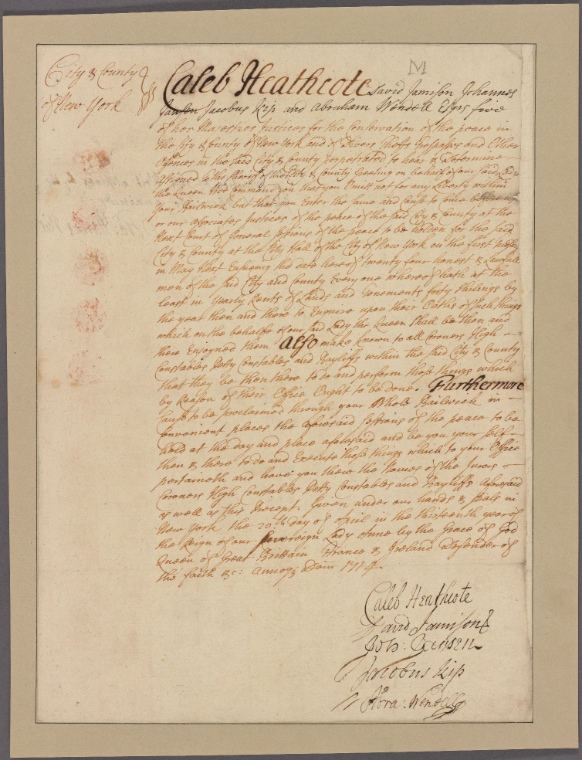 City & County
of New York } ss
M
Caleb Heathcote David Jamison Johannes
Jansen Jacobus Kip and Abraham Wendell Esqrs five
of her Majesties Justices for the Conservation of the peace in
the City & County of New York and of Divers thefts Trespasses and Other
Offences in the said City & County perpetrated to hear & Determine
Assigned to the Sheriff of the City & County Greeting on behalf of our said Lady
the Queen We Command you that you Omitt not for any Liberty within
your Bailiwick but that you Enter the same and Cause to come before us
or our associates Justices of the peace of the said City & County at the
Next Court of General Sessions of the peace to be holden for the said
City & County at the City Hall of the City of New York on the first
in May Next Ensuing the date hereof twenty four honest & Lawfull
men of the said City and County Every one whereof hath at the
Least in Yearly Rents of Lands and Tenements fifty shillings by
the year then and there to Enquire upon their Oaths of such things
which on the behalfe of our said Lady the Queen shall be then and
there Enjoyned them Also make known to all Coroners High
Constables Petty Constables and Bayliffs within the said City & County
that they be then there to do and perform those things which
by Reason of their Office Ought to be done. Furthermore
Cause to be proclaimed through your Whole Bailiwick in
Convenient places the aforesaid Sessions of the peace to be
held at the day and place aforesaid and be you your self
then & there to do and Execute those things which to your Office
pertaineth and have you there the Names of the Jurors
Coroners High Constables Petty Constables and Bayliffs aforesaid
as well as this Precept. Given under our hands & Seals in
New York the 20th day of April in the thirteenth year of
the Reign of our Sovereign Lady Anne by the Grace of God
Queen of Great Brittain France & Ireland Defender of
the faith &c: Annoq Dom 1714.
Caleb Heathcote
David Jamison
Joh: Jansen
Jacobus Kip
Abra: Wendell